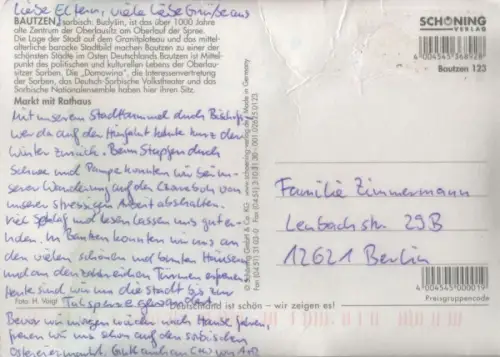 Liebe Eltern, viele liebe Grüße aus
BAUTZEN, sorbisch: Budyšin, ist das über 1000 Jahre
alte Zentrum der Oberlausitz am Oberlauf der Spree.
Die Lage der Stadt auf dem Granitplateau und das mittel-
alterliche barocke Stadtbild machen Bautzen zu einer der
schönsten Städte im Osten Deutschlands. Bautzen ist Mittel-
punkt des politischen und kulturellen Lebens der Oberlau-
sitzer Sorben. Die „Domowina", die Interessenvertretung
der Sorben, das Deutsch-Sorbische Volkstheater und das
Sorbische Nationalensemble haben hier ihren Sitz.
Markt mit Rathaus
Mit unserem Stadtbummel durch
auf der Hinfahrt kehrte kurz der
Winter zurück. Beim Stapfen durch
Schnee und Pampe konnten wir bei un-
serer Wanderung auf den von
unserer stressigen Arbeit abschalten.
Viel Schlaf und Lesen lassen uns gut
In Bautzen konnten wir uns an
den vielen schönen und bunten Häusern
und an den zahlreichen Türmen erfreuen.
Heute sind wir um die Stadt bis zur
Foto: H. Voigt Talsperre gewandert.
Bevor wir morgen wieder nach Hause fahren,
freuen wir uns schon auf den sorbischen
Ostereiermarkt.
© Schöning GmbH & Co. KG · www.schoening-verlag.de · Made in Germany
Deutschland ist schön – wir zeigen es!
SCHÖNING
VERLAG
4 004545 368928
Bautzen 123
Familie Zimmermann
Lenbachstr. 29B
12621 Berlin
4 004545 000019
Preisgruppencode